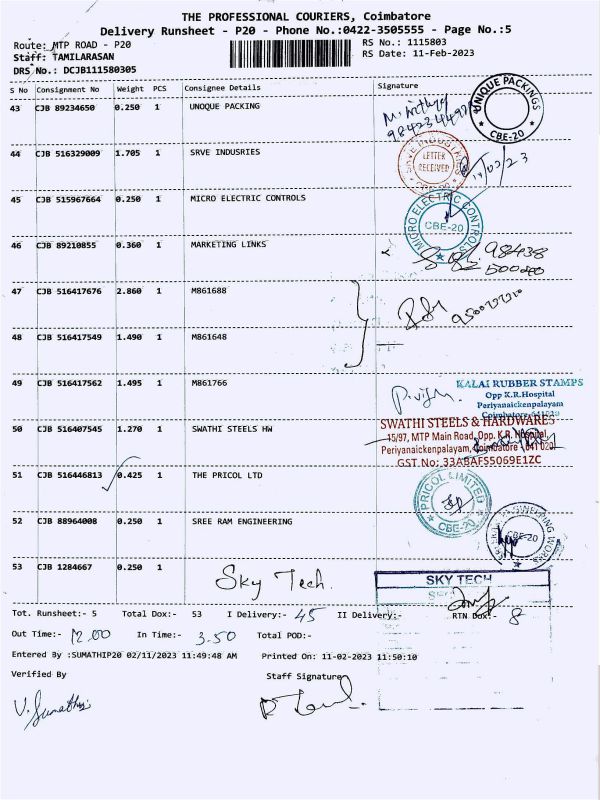 THE PROFESSIONAL COURIERS, Coimbatore
Delivery Runsheet - P20 - Phone No.:0422-3505555 - Page No.:5
Route: MTP ROAD - P20 RS No.: 1115803
Staff: TAMILARASAN RS Date: 11-Feb-2023
DRS No.: DCJB111580305
S No Consignment No Weight PCS Consignee Details Signature
43 CJB 89234650 0.250 1 UNOQUE PACKING
UNIQUE PACKINGS
CBE-20
44 CJB 516329009 1.705 1 SRVE INDUSRIES
LETTER
RECEIVED
11/02/23
45 CJB 515967664 0.250 1 MICRO ELECTRIC CONTROLS
MICRO ELECTRIC CONTROLS
CBE-20
46 CJB 89210855 0.360 1 MARKETING LINKS
98438
500200
47 CJB 516417676 2.860 1 M861688
48 CJB 516417549 1.490 1 M861648
49 CJB 516417562 1.495 1 M861766
KALAI RUBBER STAMPS
Opp K.R.Hospital
Periyanaickenpalayam
Coimbatore-641020
50 CJB 516407545 1.270 1 SWATHI STEELS HW
SWATHI STEELS & HARDWARES
15/97, MTP Main Road, Opp. K.R. Hospital,
Periyanaickenpalayam, Coimbatore - 641 020
GST.No: 33ABAFS5069E1ZC
51 CJB 516446813 0.425 1 THE PRICOL LTD
PRICOL LIMITED
CBE-20
52 CJB 88964008 0.250 1 SREE RAM ENGINEERING
CBE-20
53 CJB 1284667 0.250 1 Sky Tech.
SKY TECH
Tot. Runsheet:- 5 Total Dox:- 53 I Delivery:- 45 II Delivery:- RTN Dox:- 8
Out Time:- 12.00 In Time:- 3.50 Total POD:-
Entered By :SUMATHIP20 02/11/2023 11:49:48 AM Printed On: 11-02-2023 11:50:10
Verified By Staff Signature
V. Sumathi